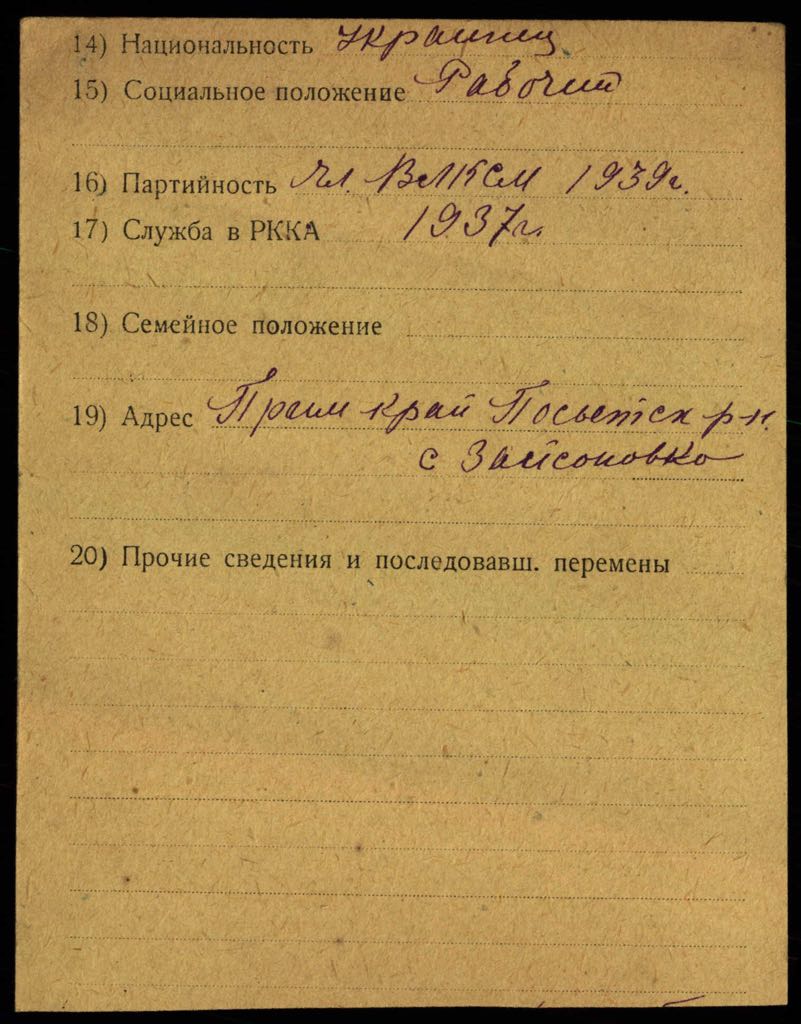 14) Национальность Украинец
15) Социальное положение Рабочий
16) Партийность Чл. ВЛКСМ 1939г.
17) Служба в РККА 1937г.
18) Семейное положение
19) Адрес Прим край Посьетск р-н.
с Зайсоновко
20) Прочие сведения и последовавш. перемены